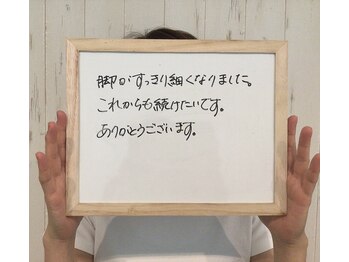 脚がすっきり細くなりました。
これからも続けたいです。
ありがとうございます。